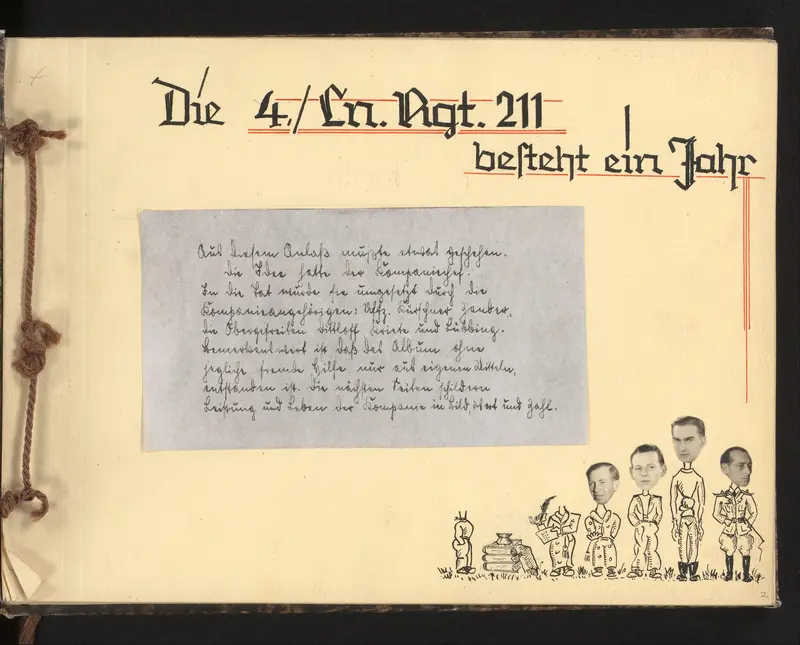 Die 4./Ln. Rgt. 211
besteht ein Jahr
Aus diesem Anlaß mußte etwas geschehen.
Die Idee hatte der Kompaniechef.
In die Tat wurde sie umgesetzt durch die
Kompanieangehörigen: Uffz. Kürschner Zander,
die Obergefreiten Dittloff Kriete und Lübbing.
Bemerkenswert ist daß das Album ohne
jegliche fremde Hilfe nur aus eigenen Mitteln,
entstanden ist. Die nächsten Seiten schildern
Leistung und Leben der Kompanie in Bild, Wort und Zahl.
2